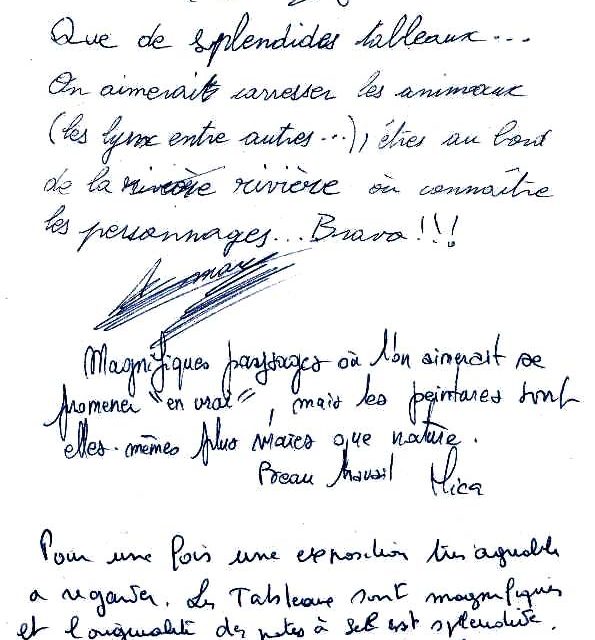 Que de splendides tableaux...
On aimerait carresser les animaux
(les lynx entre autres...), êtres au bord
de la rivière rivière où connaître
les personnages... Bravo!!!
Magnifiques paysages où l'on aimerait se
promener "en vrai", mais les peintures sont
elles-mêmes plus vraies que nature.
Beau travail Mica
Pour une fois une exposition très agréable
a regarder. Les Tableaux sont magnifiques
et l'originalité des pates à sel est splendide.